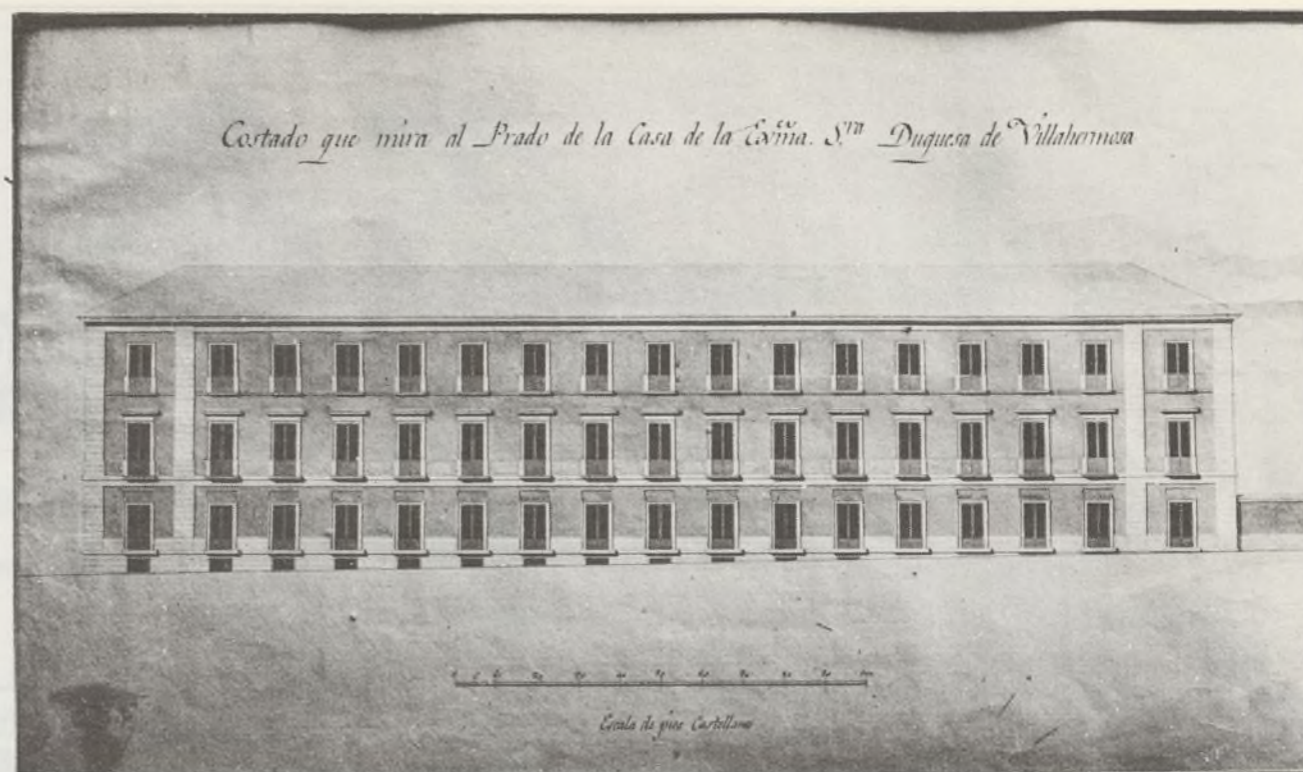 Costado que mira al Prado de la Casa de la Exma. Sra Duquesa de Villahermosa
Escala de pies Castellano